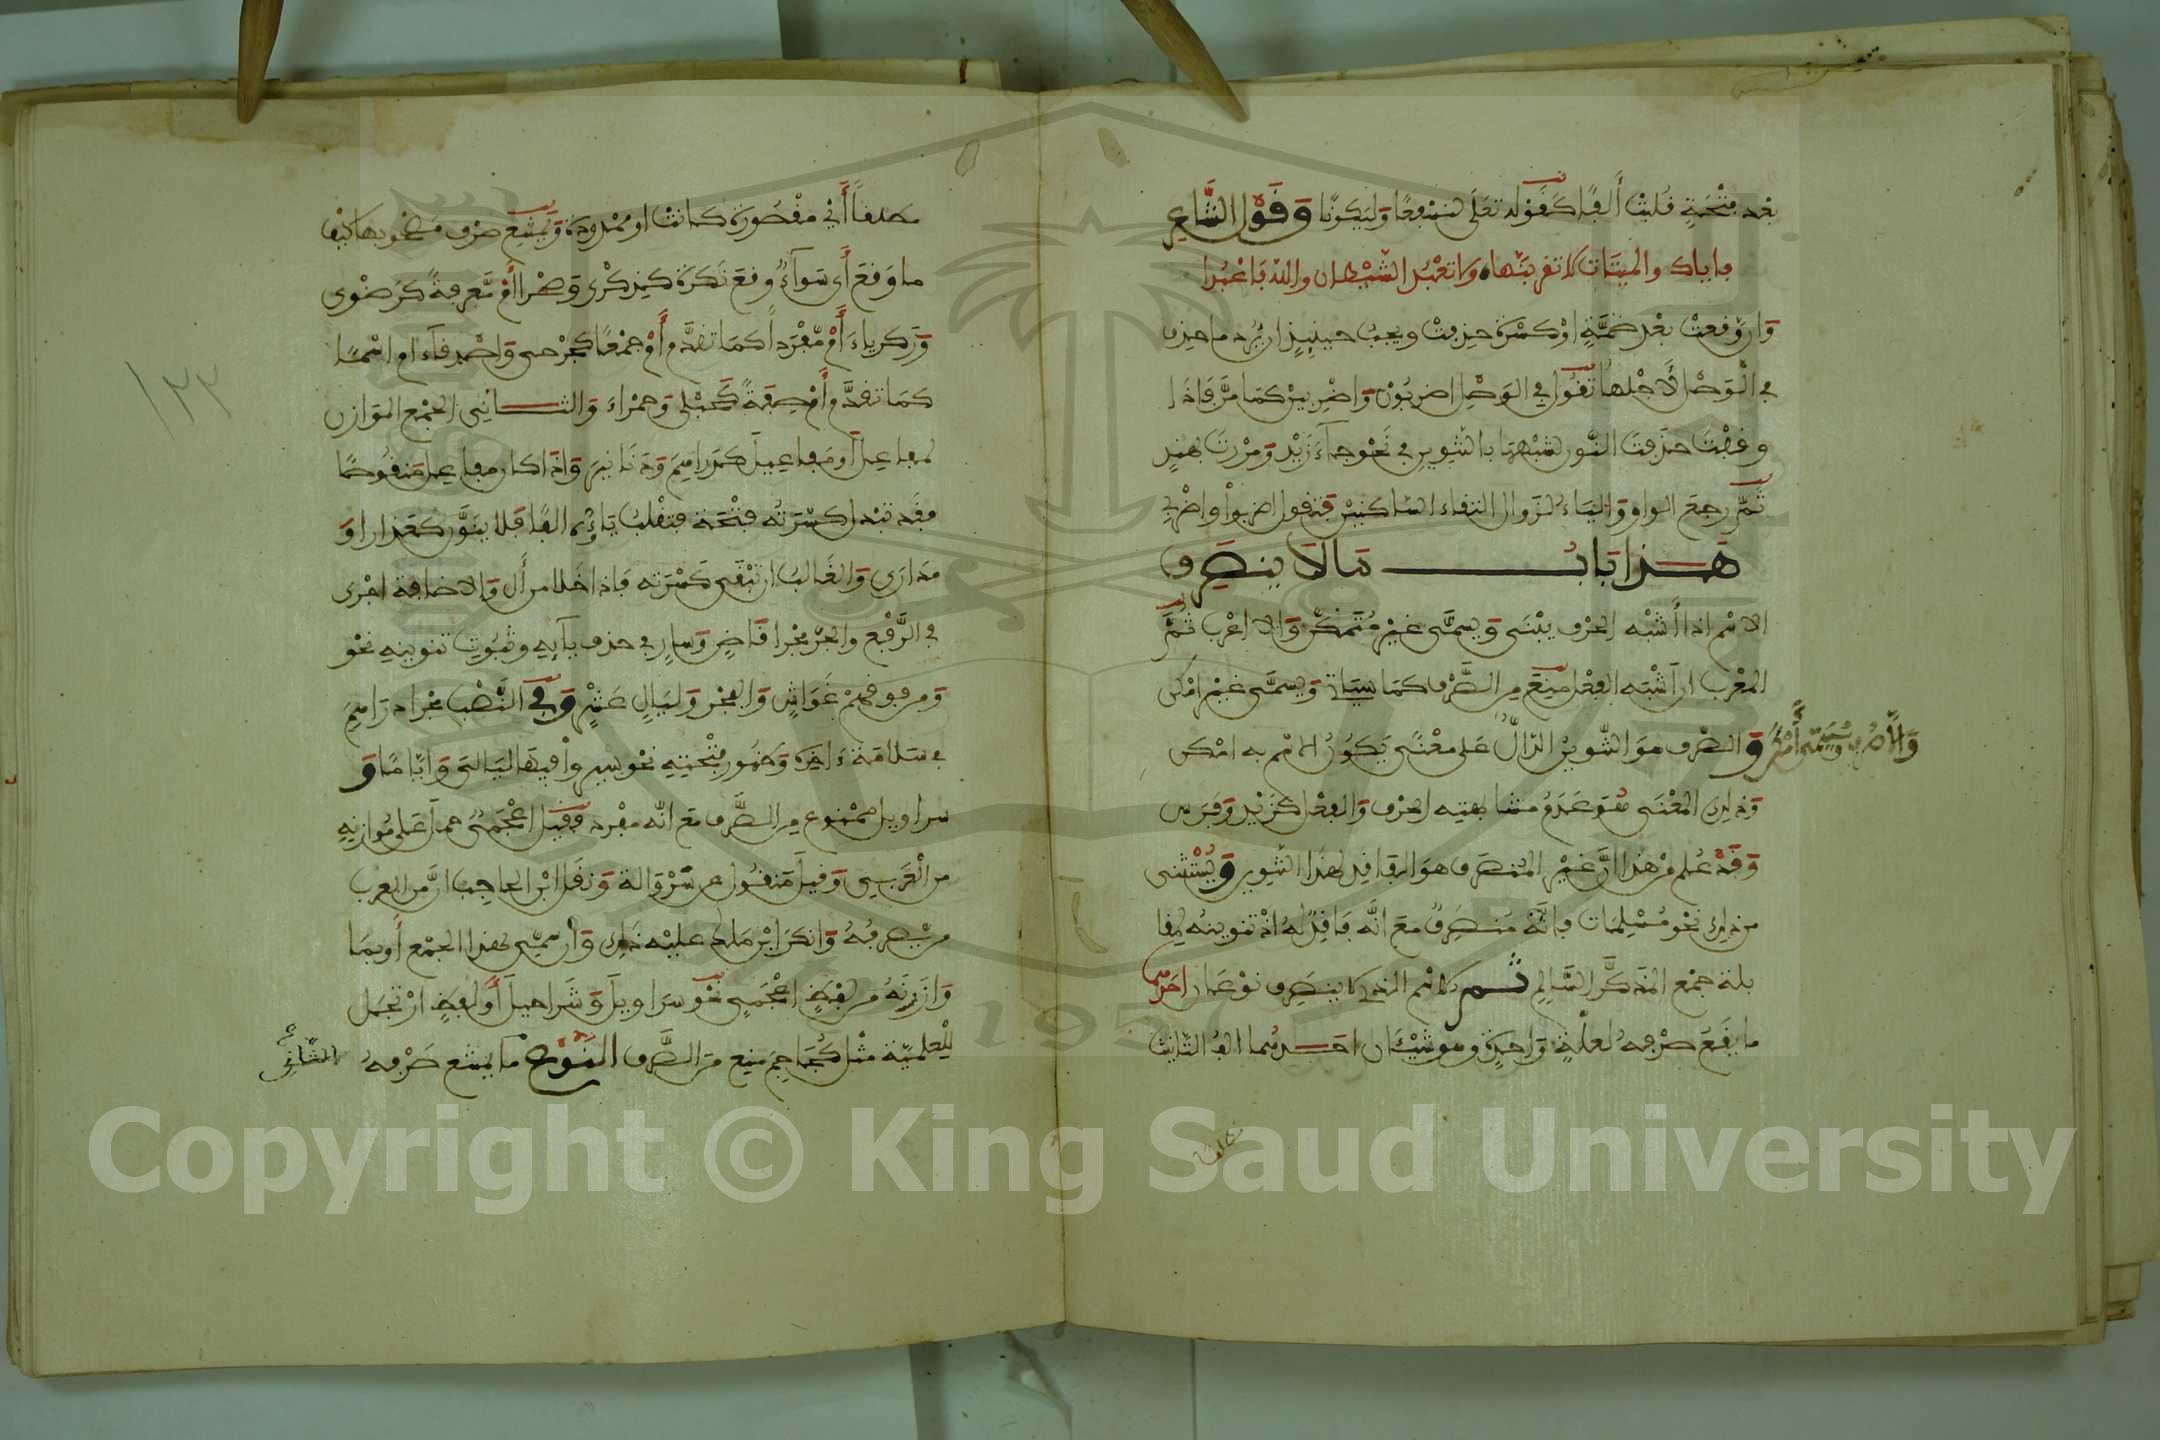 بعد فتحة قلبت ألفا كقوله تعلى لنسفعا وليكونا وقول الشاعر
فإياك والميتات لا تقربنها ولا تعبد الشيطان والله فاعبدا
وإن وقعت بعد ضمة أو كسرة حذفت ويجب حينئذ أن يرد ما حذف
في الوصل لأجلها تقول في الوصل اضربن واضربن كما مر فإذا
وقفت حذفت النون لشبهها بالتنوين في نحو جاء زيد ومررت بهند
ثم رجع الواو والياء لزوال التقاء الساكنين فتقول اضربوا واضربي
هذا باب ما لا ينصرف
الاسم إذا أشبه الحرف يبنى ويسمى غير متمكن وإلا أعرب ثم
المعرب إن أشبه الفعل منع من الصرف كما سيأتي ويسمى غير أمكن
وإلا صرف ويسمى أمكن
والصرف هو التنوين الدال على معنى يكون الاسم به أمكن
وذلك المعنى هو عدم مشابهته الحرف والفعل كزيد وفرس
وقد علم من هذا أن غير المنصرف هو الفاقد لهذا التنوين ويستثنى
من ذلك نحو مسلمات فإنه منصرف مع أنه فاقد له إذ تنوينه لمقا
بلة جمع المذكر السالم ثم الاسم الذي لا ينصرف نوعان أحدهما
ما يمنع صرفه لعلة واحدة وهو شيئان أحدهما ألف التانيث
مطلقا
مطلقا أي مقصورة كانت أو ممدودة ويمتنع صرف مصحوبها كيف
ما وقع أي سواء وقع نكرة كذكرى وصحرا أم معرفة كرضوى
وزكرياء أم مفردا كما تقدم أو جمعا كجرحى وأصدقاء أم اسما
كما تقدم أم صفة كحبلى وحمراء والثاني الجمع الموازن
لمفاعل أو مفاعيل كدراهم ودنانير وإذا كان مفاعل منقوصا
فقد تبدل كسرته فتحة فتقلب ياؤه ألفا فلا ينون كعذارا و
مداري والغالب أن تبقى كسرته فإذا خلا من أل والإضافة أجري
في الرفع والجر مجرا قاض وسار في حذف يائه وثبوت تنوينه نحو
ومن فوقهم غواش والفجر وليال عشر وفي النصب مجرا دراهم
في سلامة ءاخره وظهور فتحته نحو سيروا فيها ليالي وأياما و
سراويل ممنوع من الصرف مع أنه مفرد فقيل أعجمي حمل على موازنه
من العربي وقيل منقول عن سروالة ونقل ابن الحاجب أن من العرب
من يصرفه وأنكر ابن مالك عليه ذلك وإن سمي بهذا الجمع أو بما
وازنه من لفظ أعجمي نحو سراويل وشراحيل أو لفظ ارتجل
للعلمية مثل كجاجم منع من الصرف النوع ما يمتنع صرفه
الثاني
١٣٣
Copyright © King Saud University
1957